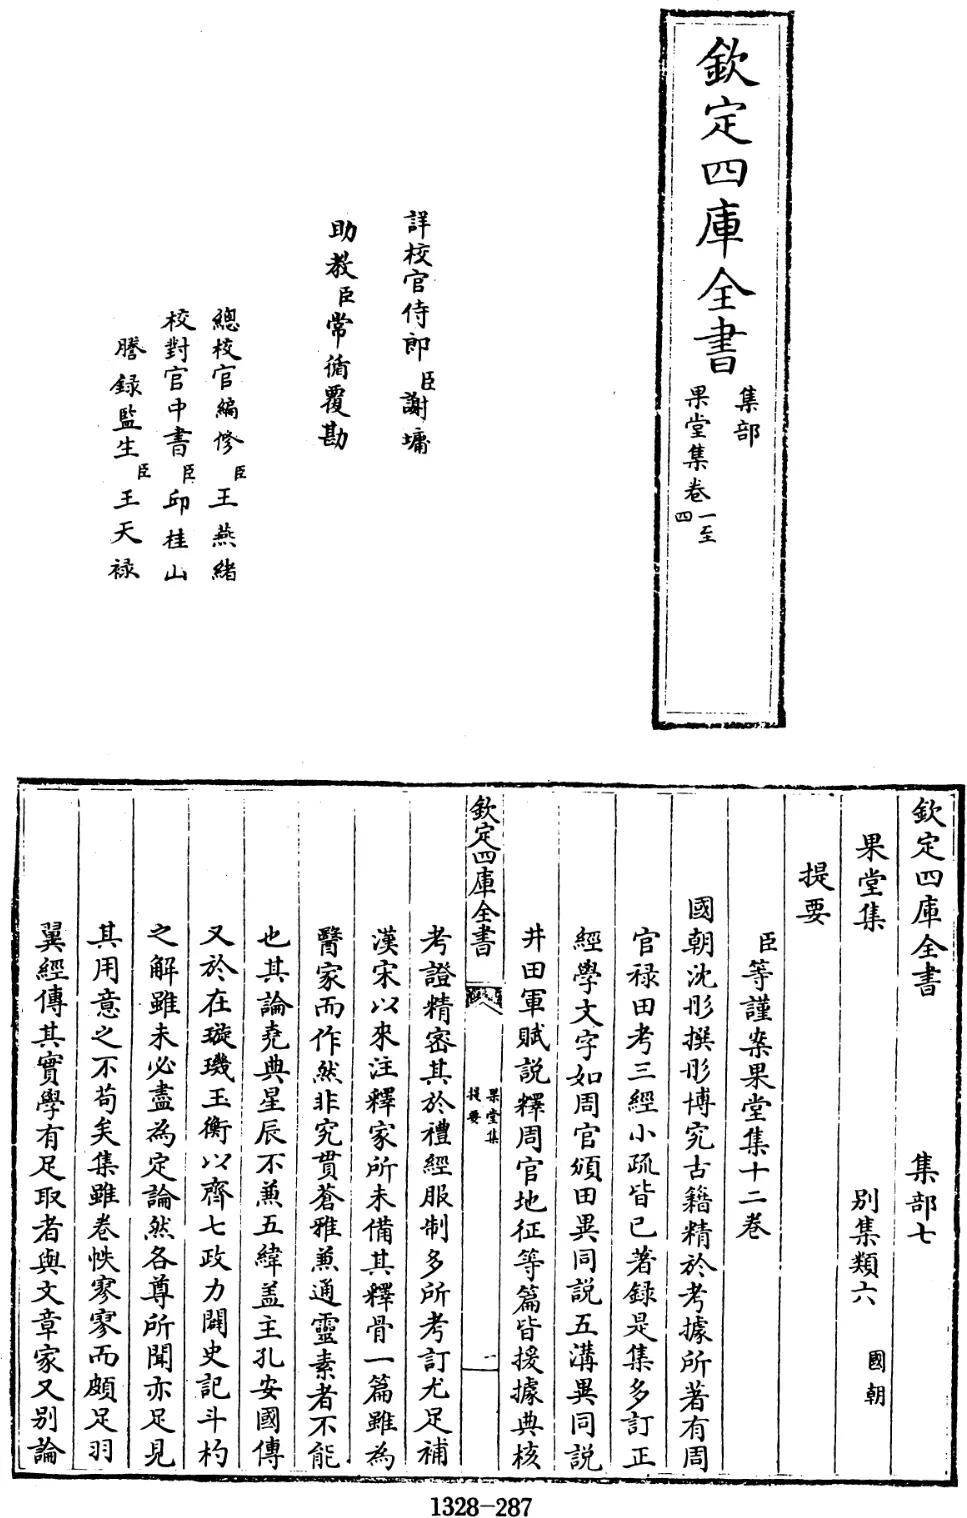 欽定四庫全書
集部
果堂集卷一至四
詳校官侍郎臣謝墉
助教臣常循覆勘
總校官編修臣王燕緒
校對官中書臣邱桂山
謄錄監生臣王天祿
欽定四庫全書 集部七
果堂集 別集類六 國朝
提要
臣等謹案果堂集十二卷
國朝沈彤撰彤博究古籍精於考據所著有周
官禄田考三經小疏皆已著録是集多訂正
經學文字如周官頒田異同説五溝異同説
井田軍賦説釋周官地征等篇皆援據典核
欽定四庫全書
果堂集
提要
一
考證精密其於禮經服制多所考訂尤足補
漢宋以來注釋家所未備其釋骨一篇雖為
醫家而作然非究貫蒼雅兼通靈素者不能
也其論堯典星辰不兼五緯蓋主孔安國傳
又於在璇璣玉衡以齊七政力闢史記斗杓
之解雖未必盡為定論然各尊所聞亦足見
其用意之不苟矣集雖卷帙寥寥而頗足羽
翼經傳其實學有足取者與文章家又别論
1328-287